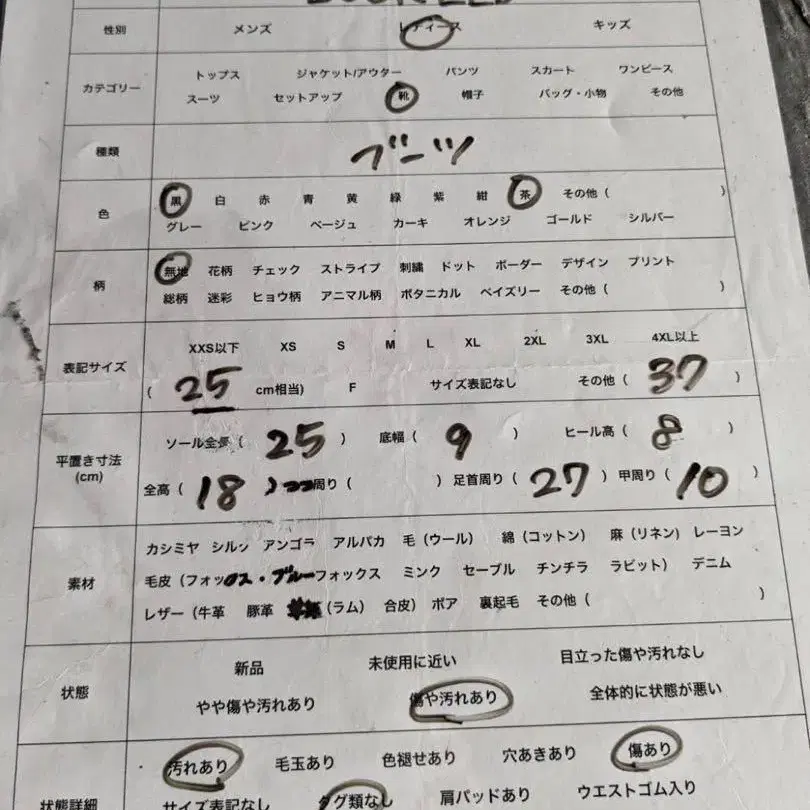 性別 メンズ レディース キッズ
カテゴリー
トップス ジャケット/アウター パンツ スカート ワンピース
スーツ セットアップ 靴 帽子 バッグ・小物 その他
種類 ブーツ
色
黒 白 赤 青 黄 緑 紫 紺 茶 その他 ( )
グレー ピンク ベージュ カーキ オレンジ ゴールド シルバー
柄
無地 花柄 チェック ストライプ 刺繍 ドット ボーダー デザイン プリント
総柄 迷彩 ヒョウ柄 アニマル柄 ボタニカル ペイズリー その他 ( )
表記サイズ
XXS以下 XS S M L XL 2XL 3XL 4XL以上
( 25 cm相当) F サイズ表記なし その他 ( 37 )
平置き寸法
(cm)
ソール全長 ( 25 ) 底幅 ( 9 ) ヒール高 ( 8 )
全高 ( 18 ) 周り ( ) 足首周り ( 27 ) 甲周り ( 10 )
素材
カシミヤ シルク アンゴラ アルパカ 毛 (ウール) 綿 (コットン) 麻 (リネン) レーヨン
毛皮 (フォックス・ブルーフォックス ミンク セーブル チンチラ ラビット) デニム
レザー (牛革 豚革 (ラム) 合皮) ボア 裏起毛 その他 ( )
状態
新品 未使用に近い 目立った傷や汚れなし
やや傷や汚れあり 傷や汚れあり 全体的に状態が悪い
状態詳細
汚れあり 毛玉あり 色褪せあり 穴あきあり 傷あり
サイズ表記なし タグ類なし 肩パッドあり ウエストゴム入り